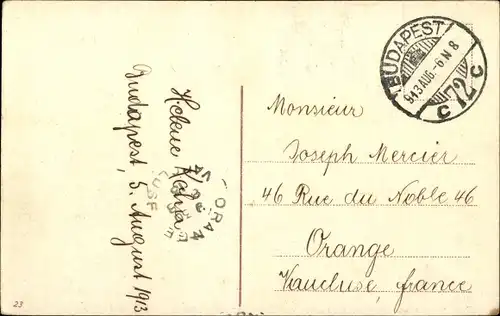 Helene Kohn
Budapest, 5. August 1913
BUDAPEST
913 AUG. -6. N 8
C 72 C
Monsieur
Joseph Mercier
46 Rue du Noble 46
Orange
Vaucluse, france
ORA
23